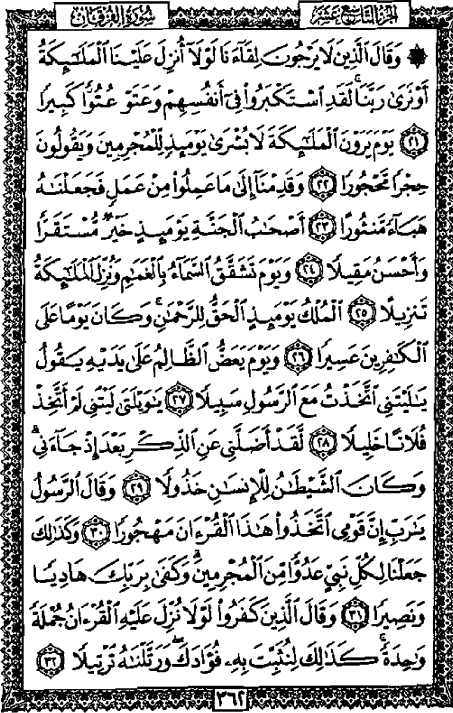 الجزء التاسع عشر
سورة الفرقان
۞ وَقَالَ الَّذِينَ لَا يَرْجُونَ لِقَاءَنَا لَوْلَا أُنزِلَ عَلَيْنَا الْمَلَٰٓئِكَةُ
أَوْ نَرَىٰ رَبَّنَا ۗ لَقَدِ اسْتَكْبَرُوا فِي أَنفُسِهِمْ وَعَتَوْ عُتُوًّا كَبِيرًا
٢١ يَوْمَ يَرَوْنَ الْمَلَٰٓئِكَةَ لَا بُشْرَىٰ يَوْمَئِذٍ لِّلْمُجْرِمِينَ وَيَقُولُونَ
حِجْرًا مَّحْجُورًا ٢٢ وَقَدِمْنَا إِلَىٰ مَا عَمِلُوا مِنْ عَمَلٍ فَجَعَلْنَٰهُ
هَبَاءً مَّنثُورًا ٢٣ أَصْحَٰبُ الْجَنَّةِ يَوْمَئِذٍ خَيْرٌ مُّسْتَقَرًّا
وَأَحْسَنُ مَقِيلًا ٢٤ وَيَوْمَ تَشَقَّقُ السَّمَاءُ بِالْغَمَٰمِ وَنُزِّلَ الْمَلَٰٓئِكَةُ
تَنزِيلًا ٢٥ الْمُلْكُ يَوْمَئِذٍ الْحَقُّ لِلرَّحْمَٰنِ ۚ وَكَانَ يَوْمًا عَلَى
الْكَٰفِرِينَ عَسِيرًا ٢٦ وَيَوْمَ يَعَضُّ الظَّالِمُ عَلَىٰ يَدَيْهِ يَقُولُ
يَٰلَيْتَنِي اتَّخَذْتُ مَعَ الرَّسُولِ سَبِيلًا ٢٧ يَٰوَيْلَتَىٰ لَيْتَنِي لَمْ أَتَّخِذْ
فُلَانًا خَلِيلًا ٢٨ لَّقَدْ أَضَلَّنِي عَنِ الذِّكْرِ بَعْدَ إِذْ جَاءَنِي ۗ
وَكَانَ الشَّيْطَٰنُ لِلْإِنسَٰنِ خَذُولًا ٢٩ وَقَالَ الرَّسُولُ
يَٰرَبِّ إِنَّ قَوْمِي اتَّخَذُوا هَٰذَا الْقُرْءَانَ مَهْجُورًا ٣٠ وَكَذَٰلِكَ
جَعَلْنَا لِكُلِّ نَبِيٍّ عَدُوًّا مِّنَ الْمُجْرِمِينَ ۗ وَكَفَىٰ بِرَبِّكَ هَادِيًا
وَنَصِيرًا ٣١ وَقَالَ الَّذِينَ كَفَرُوا لَوْلَا نُزِّلَ عَلَيْهِ الْقُرْءَانُ جُمْلَةً
وَٰحِدَةً ۚ كَذَٰلِكَ لِنُثَبِّتَ بِهِ فُؤَادَكَ ۖ وَرَتَّلْنَٰهُ تَرْتِيلًا ٣٢
٣٦٢